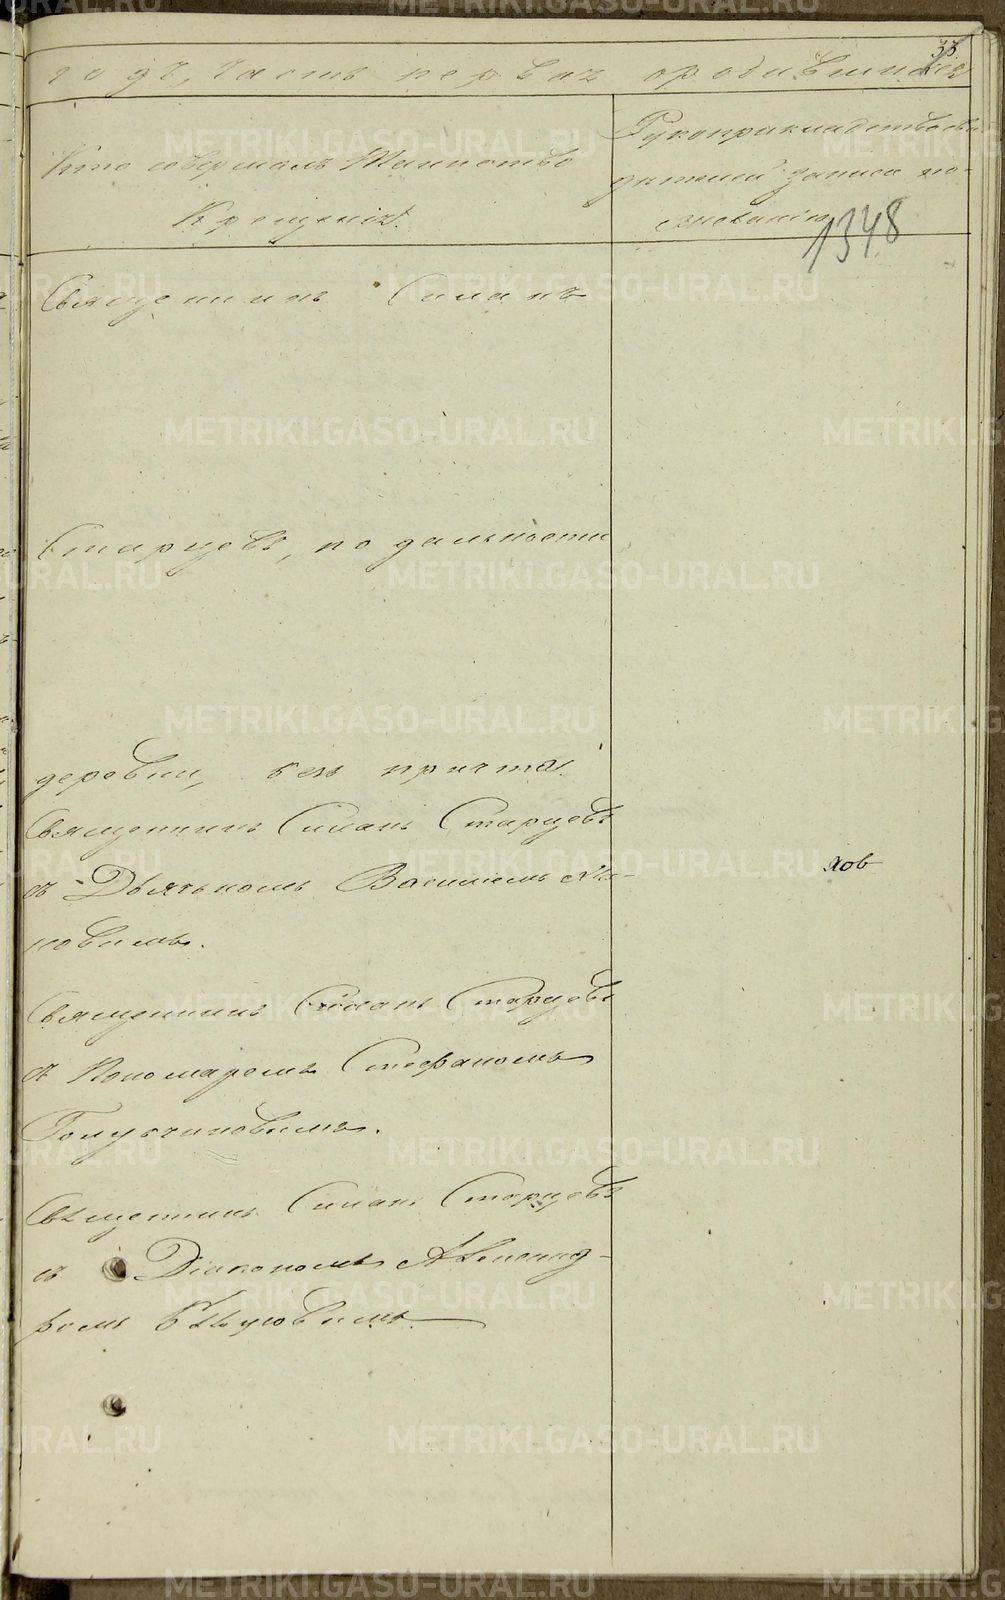 33
годъ, часть первая о родившихся
Кто совершалъ Таинство
Крещенія.
Рукоприкладство сви-
дѣтелей записи по
желанію
1348
Священникъ Симанъ
Старцевъ, по дальности
деревни, безъ причта.
Священникъ Симанъ Старцевъ
хов
съ Дьячкомъ Василіемъ
новымъ.
Священникъ Симанъ Старцевъ
съ Пономаремъ Стефаномъ
Голубчиковымъ.
Священникъ Симанъ Старцевъ
съ Діакономъ Александ-
ромъ
METRIKI.GASO-URAL.RU